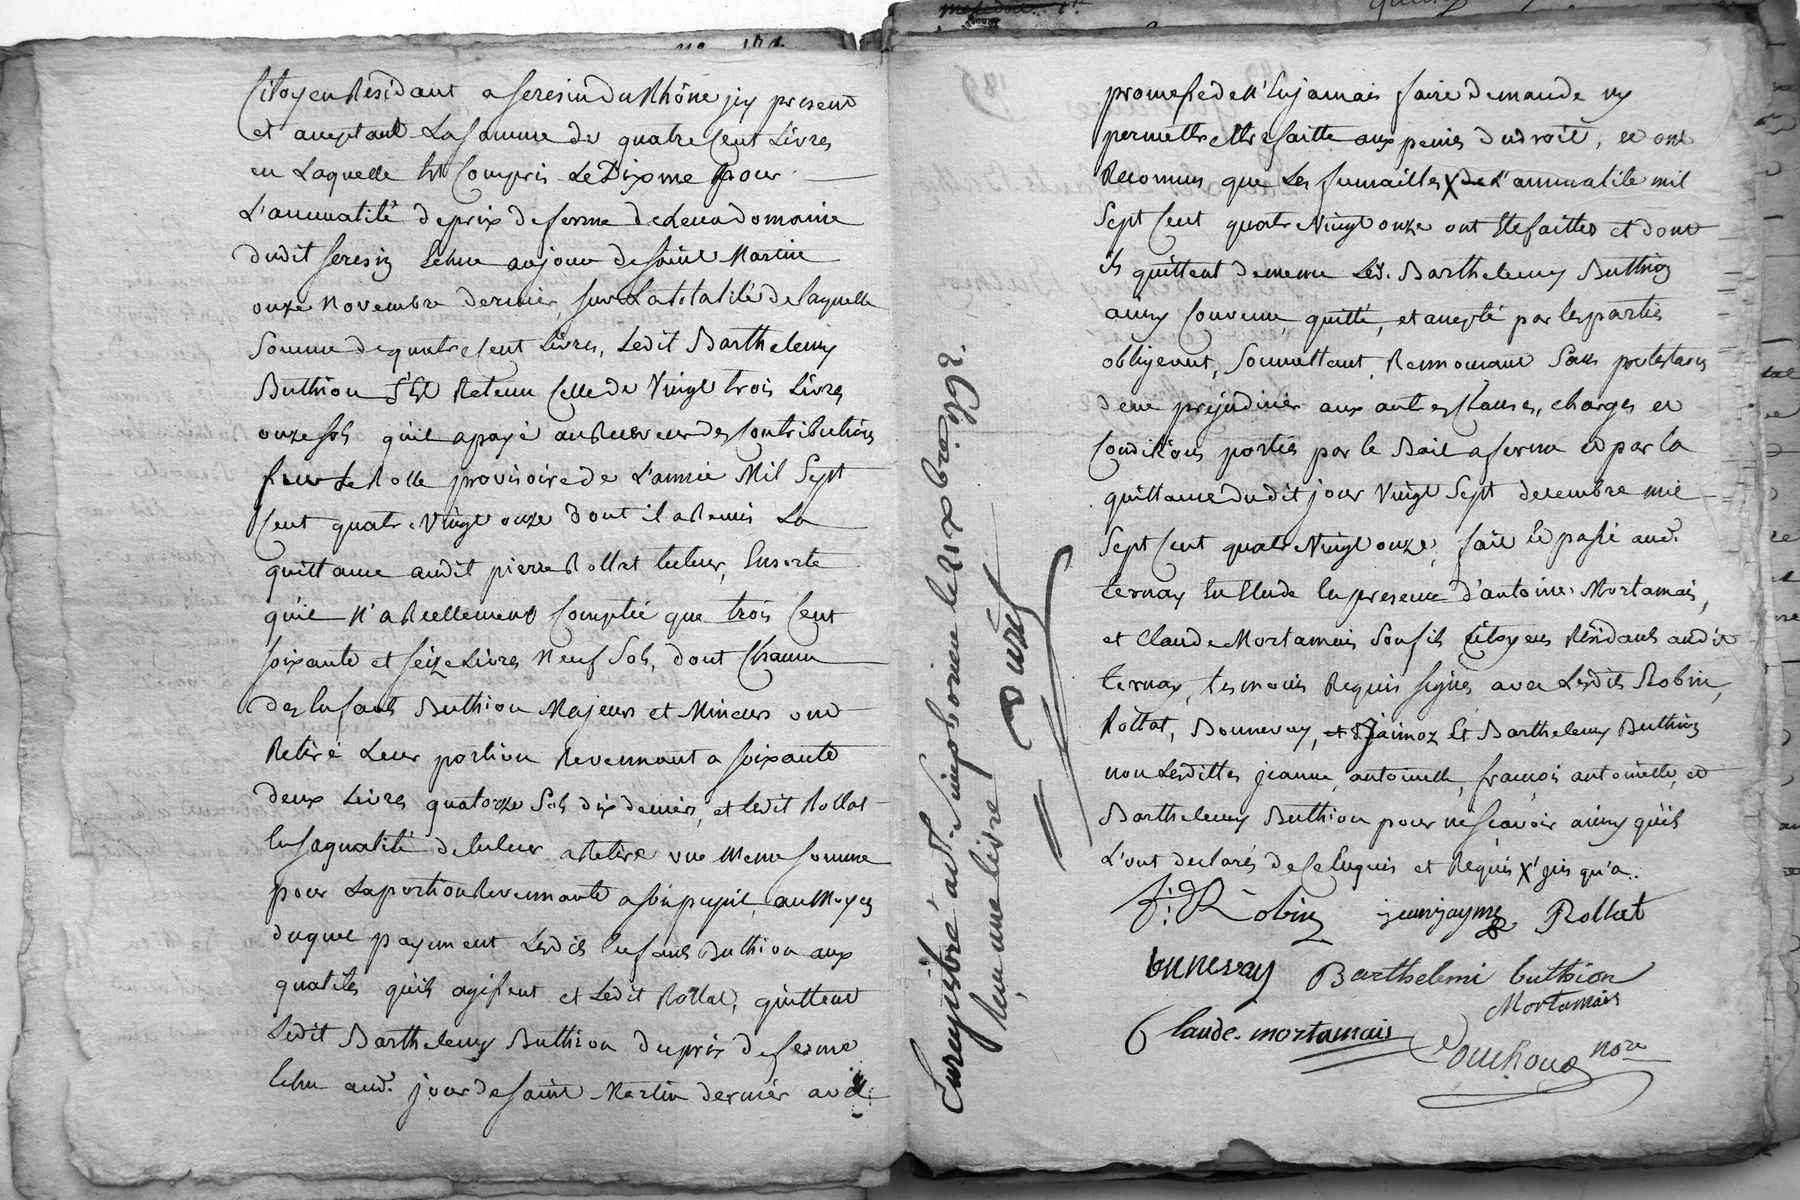 Citoyen Résidant a seresin du Rhône jcy present
et aceptant La somme de quatre Cent Livres
en Laquelle Est Compris Le Dixme pour
L'annuatité de prix de ferme de Leur domaine
dudit seresin Echue au jour de saint Martin
onze novembre dernier, sur La totalité de laquelle
Somme de quatre Cent Livres, Ledit Barthelemy
Buthion s'Est Retenu Celle de Vingt trois Livres
onze sols qu'il a payé au Receveur des Contributions
sur Le Rolle provisoire de L'année Mil Sept
Cent quatre Vingt onze dont il a Remis La
quittance audit pierre Rollat tuteur, Ensorte
qu'il N'a Reellement Compté que trois Cent
soixante et seize Livres Neuf Sols, dont Chacun
des Enfants Buthion Majeurs et Mineurs ont
Retiré Leur portion Revennant a soixante
deux Livres quatorze Sols dix deniers, et Ledit Rollat
En sa qualité de tuteur a Retiré une Meme somme
pour La portion Revennante a son pupil, au Moyen
duquel payement Lesdits Enfants Buthion aux
qualités qu'ils agissent et Ledit Rollat, quittent
Ledit Barthelemy Buthion du prix de ferme
Echu aud. jour de saint Martin dernier avec
Enregistré a St. Simphorien le 9bre 1792.
Reçu une livre
promesse de N'En jamais faire demande ny
permettre Etre faitte aux peines du droit, et ont
Reconnus que Les semailles X de L'annuatité mil
Sept Cent quatre Vingt onze ont Eté faittes et dont
ils quittent de meme Led. Barthelemy Buthion
ainsy Convenu, quitté, et accepté par les parties
obligeant, Soumettant, Rennonçant Sans protestations
de ne prejudicier aux autres Clauses, charges et
Conditions portés par le Bail a ferme et par la
quittance dudit jour Vingt Sept decembre mil
Sept Cent quatre Vingt onze, fait Et passé aud.
ternay En Etude En presence d'antoine Mortamais,
et Claude Mortamais son fils Citoyens Résidants audit
ternay, temoins Requis signés avec Lesdits Robin,
Rollat, Bonnevay, et Jaimoz Et Barthelemy Buthion
non Lesdittes jeanne, antoinette, françois, antoinette, et
Barthelemy Buthion pour ne sçavoir ainsy qu'ils
L'ont declarés de ce Enquis et Requis X
f. Robin jeanjayme Rollat
bnnevay Barthelemi buthion
Mortamais
Claude mortamais nore